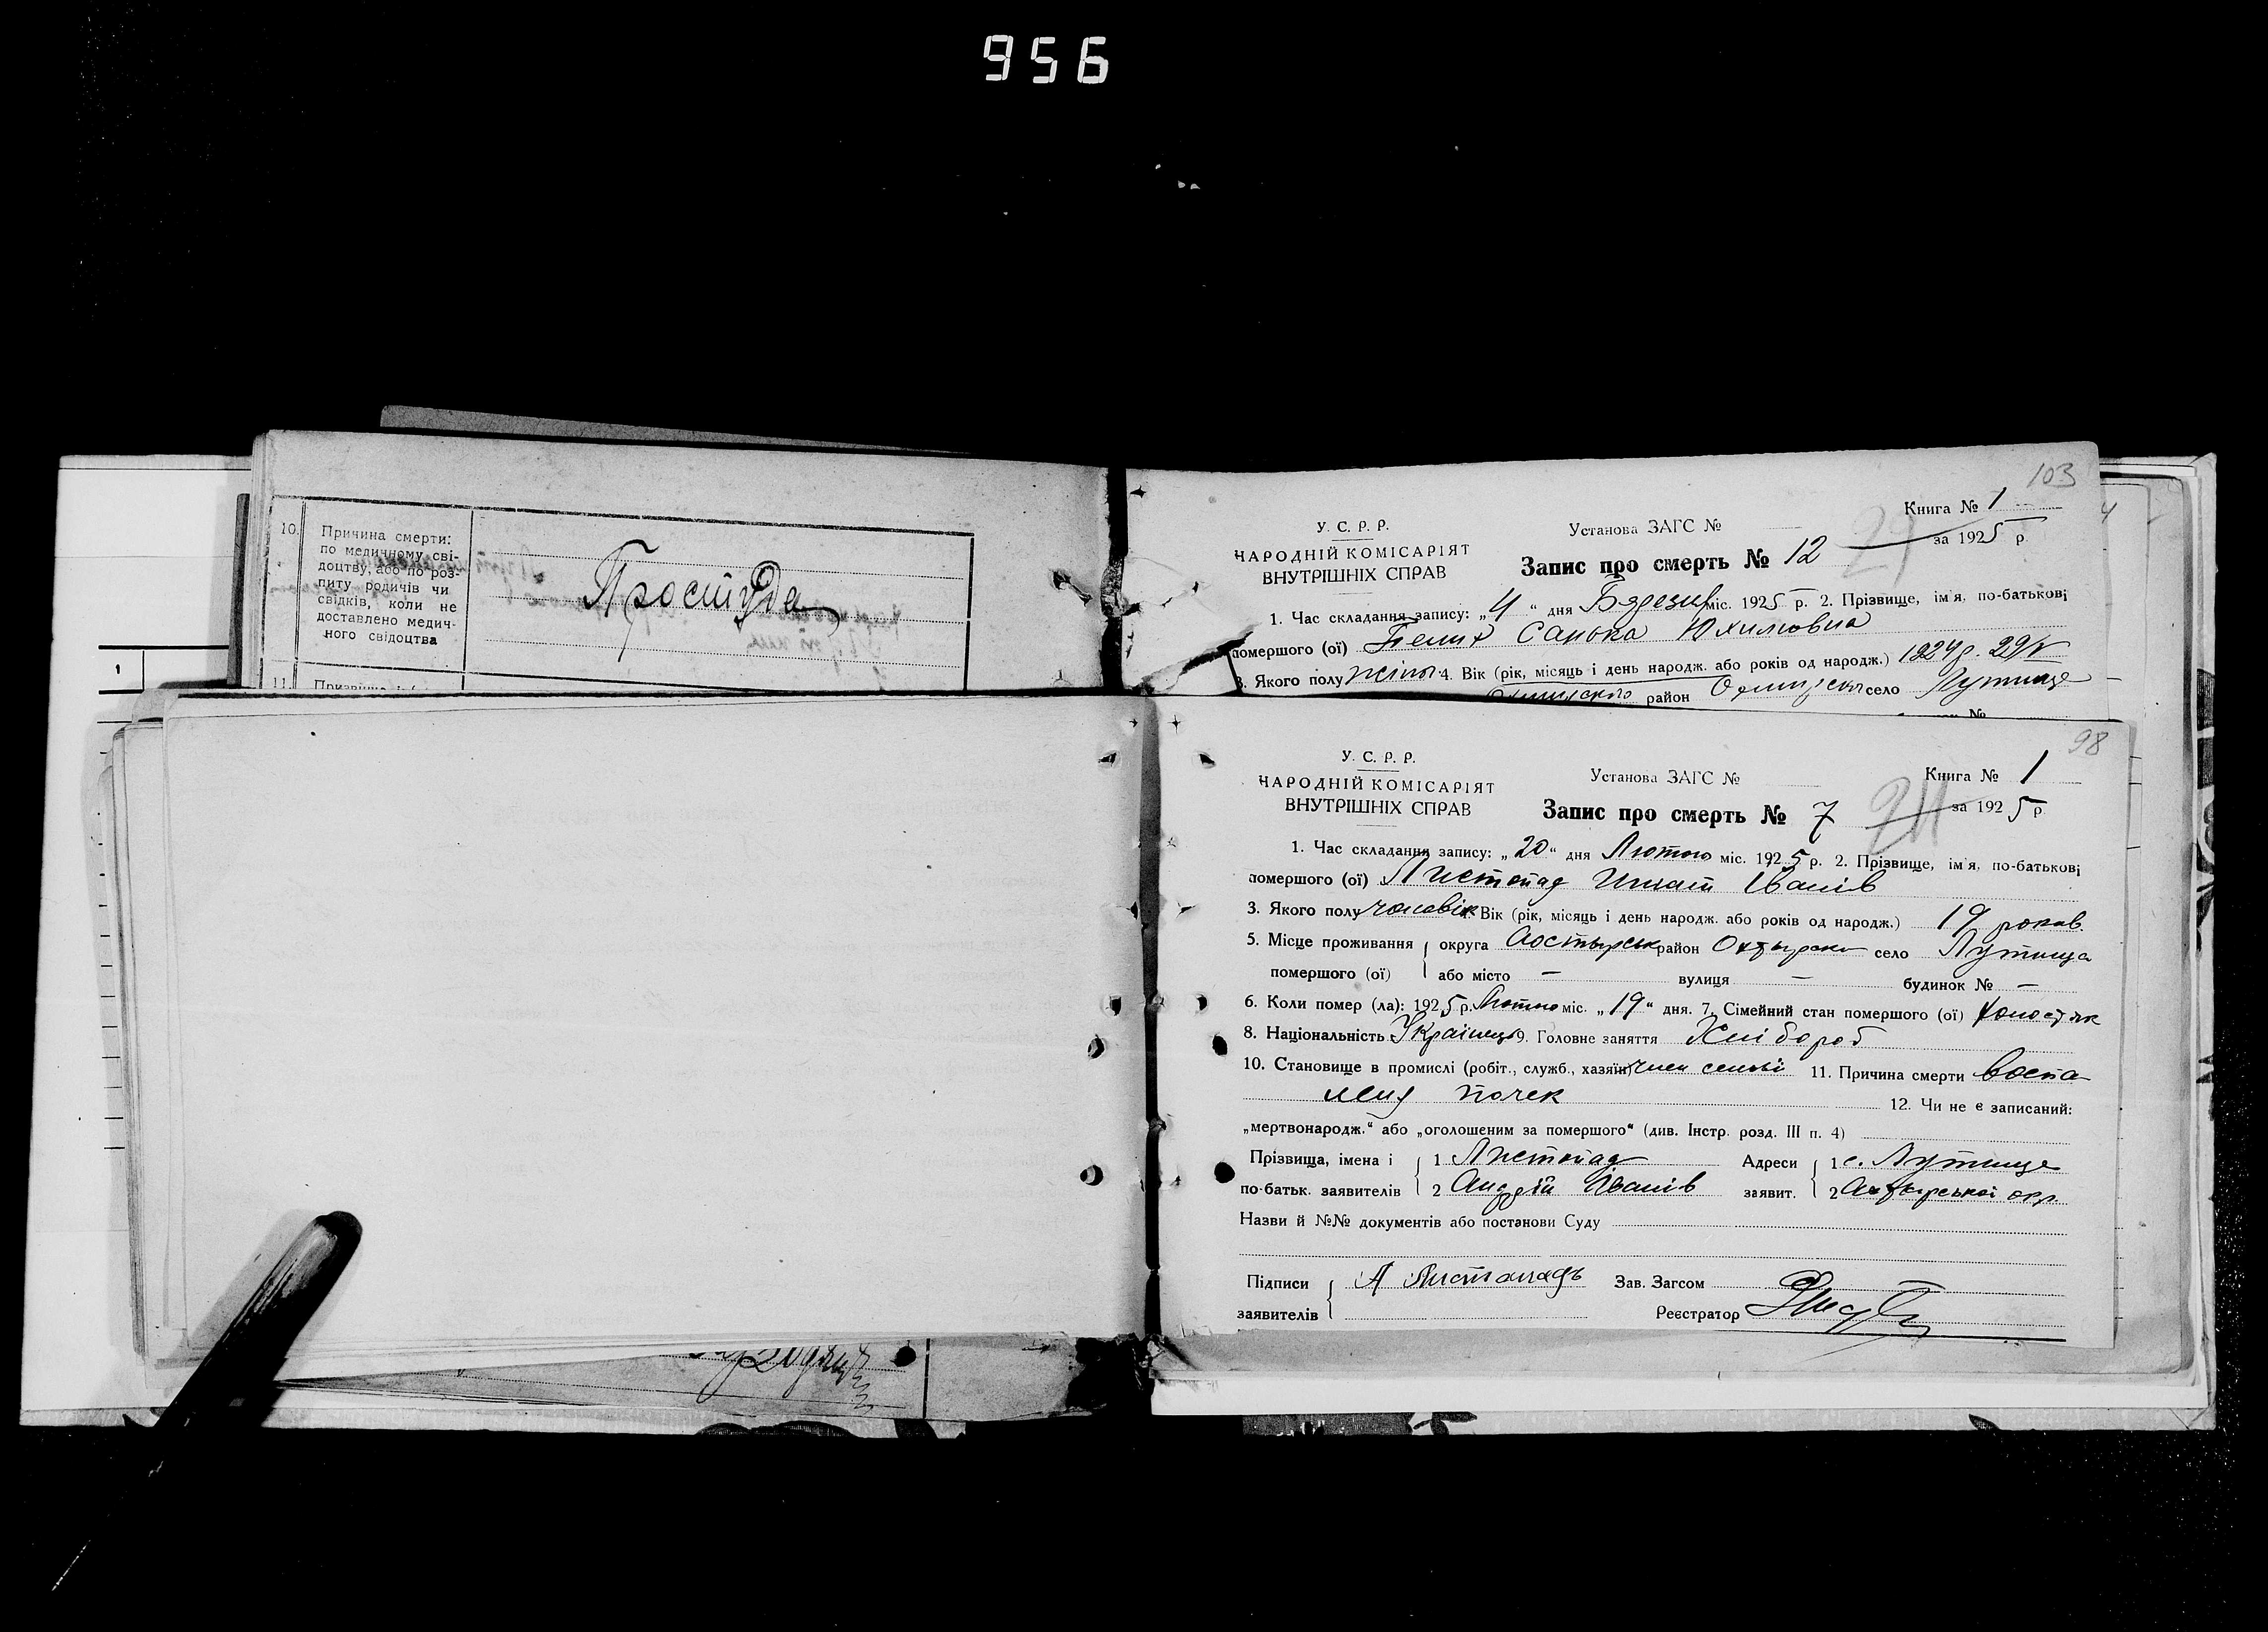 956
10.
Причина смерти:
по медичному сві-
доцтву, або по роз-
питу родичів чи
свідків, коли не
доставлено медич-
ного свідоцтва
Простуда
11.
1
103
У. С. Р. Р.
НАРОДНІЙ КОМІСАРІЯТ
ВНУТРІШНІХ СПРАВ
Установа ЗАГС №
Книга № 1
Запис про смерть № 12
за 1925 р.
1. Час складання запису: „4“ дня міс. 1925 р. 2. Прізвище, ім'я, по-батькові
помершого (ої) Санька Юхимовна
3. Якого полу 4. Вік (рік, місяць і день народж. або років од народж.) 1924 р.
район село Лутище
98
У. С. Р. Р.
НАРОДНІЙ КОМІСАРІЯТ
ВНУТРІШНІХ СПРАВ
Установа ЗАГС №
Книга № 1
Запис про смерть № 7
за 1925 р.
1. Час складання запису: „20“ дня Лютого міс. 1925 р. 2. Прізвище, ім'я, по-батькові
помершого (ої) Листопад Игнат Іванів
3. Якого полу чоловік Вік (рік, місяць і день народж. або років од народж.) 19 роков
5. Місце проживання округа район село Лутища
помершого (ої) або місто — вулиця — будинок № —
6. Коли помер (ла): 1925 р. Лютого міс. „19“ дня. 7. Сімейний стан помершого (ої)
8. Національність Українець 9. Головне заняття Хлібороб
10. Становище в промислі (робіт., служб., хазяїн) член семьї 11. Причина смерти воспа
ления почек 12. Чи не є записаний:
„мертвонародж.“ або „оголошеним за помершого“ (див. Інстр. розд. III п. 4)
Прізвища, імена і 1 Листопад Адреси 1 с. Лутище
по-батьк. заявителів 2 Андрій Іванів заявит. 2 окр.
Назви й №№ документів або постанови Суду
Підписи А Листопадъ Зав. Загсом
заявителів Реєстратор